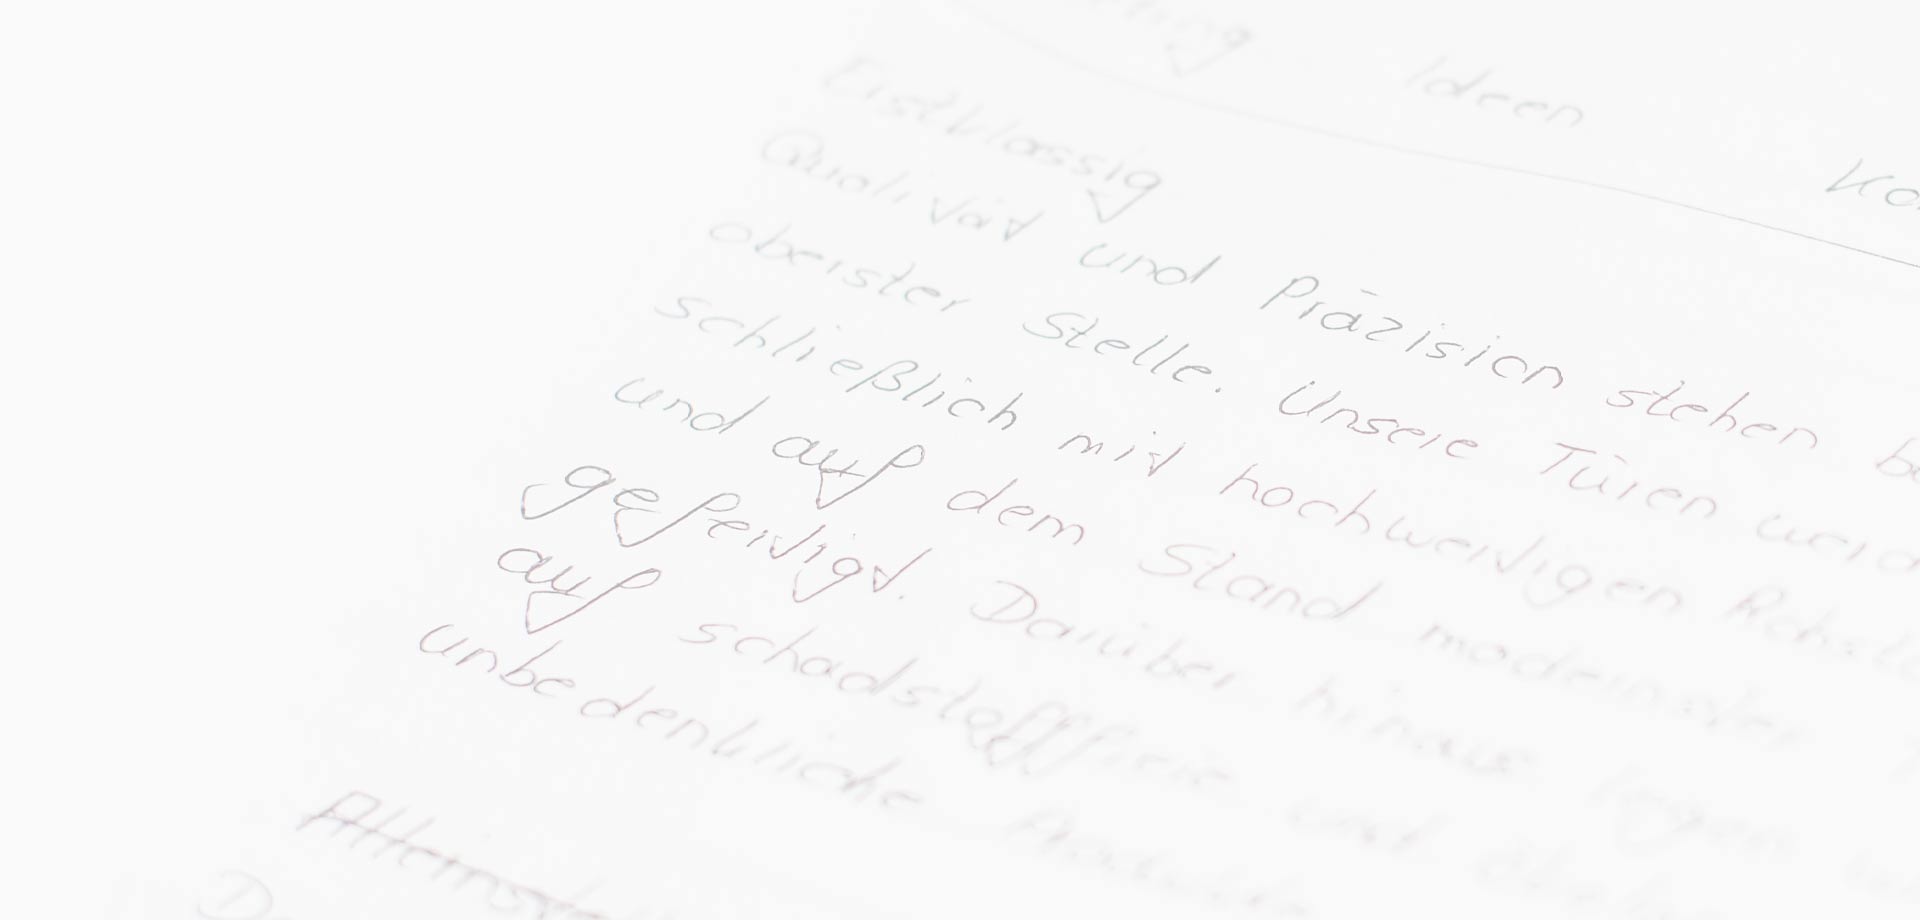 Ideen
Erstklassig
Qualität und Präzision stehen
oberster Stelle. Unsere Türen
schließlich mit hochwertigen
und auf dem Stand modernster
gefertigt. Darüber hinaus legen
auf schadstofffreie und
unbedenkliche Produkte